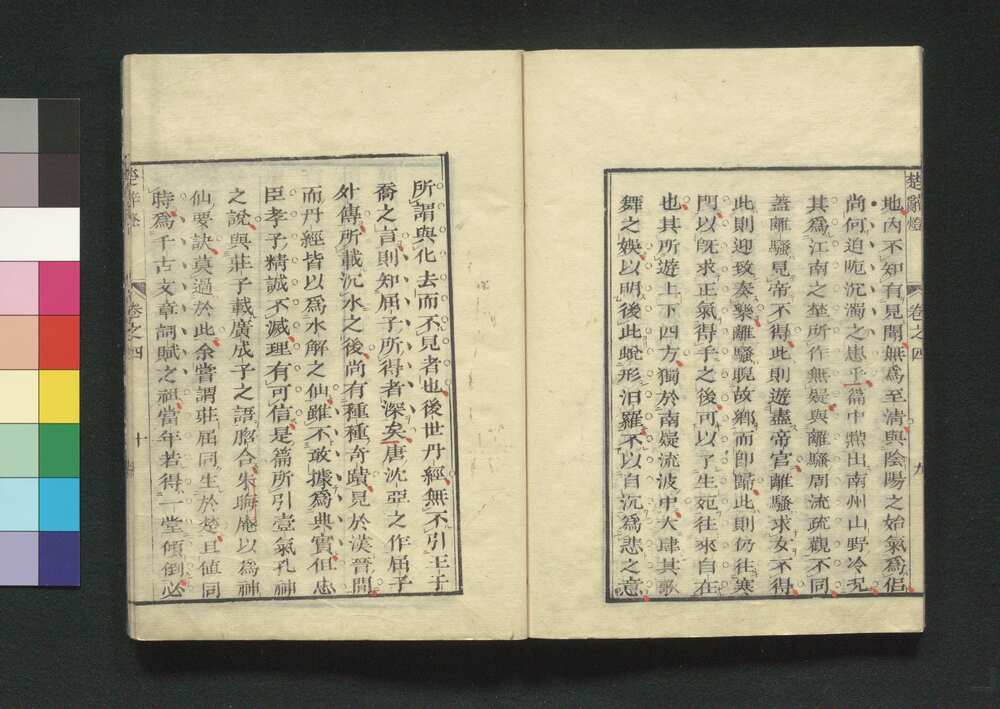 楚辭燈
卷之四
九
地內不知有見聞無爲至清與陰陽之始氣爲侶
尚何迫阨沉濁之患乎篇中撰出南州山野冷況
其爲江南之埜所作無疑與離騷周流疏觀不同
蓋離騷見帝不得此則遊盡帝宮離騷求女不得
此則迎致奏樂離騷睨故鄉而卽歸此則仍往寒
門以旣求正氣得手之後可以了生死往來自在
也其所遊上下四方獨於南疑流波中大肆其歌
舞之娛以明後此蛻形汨羅不以自沉爲悲之意
所謂與化去而不見者也後世丹經無不引王子
喬之言則知屈子所得者深矣唐沈亞之作屈子
外傳所載沉水之後尚有種種奇蹟見於漢晉間
而丹經皆以爲水解之仙雖不敢據爲典實但忠
臣孝子精誠不滅理有可信是篇所引壹氣孔神
之說與莊子載廣成子之語脗合朱晦庵以爲神
仙要訣莫過於此余嘗謂莊屈同生於楚且値同
時爲千古文章詞賦之祖當年若得一堂傾倒必
卷之四
十